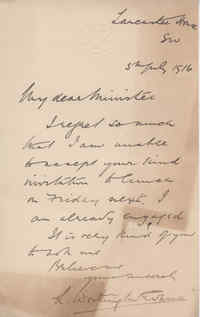 Lancaster House
SW
5th July 1916
My dear Minister
I regret so much
that I am unable
to accept your kind
invitation to
on Friday next. I
am already engaged
It is very kind of you
to ask me
Believe me
yours sincerely
L. Worthington Evans